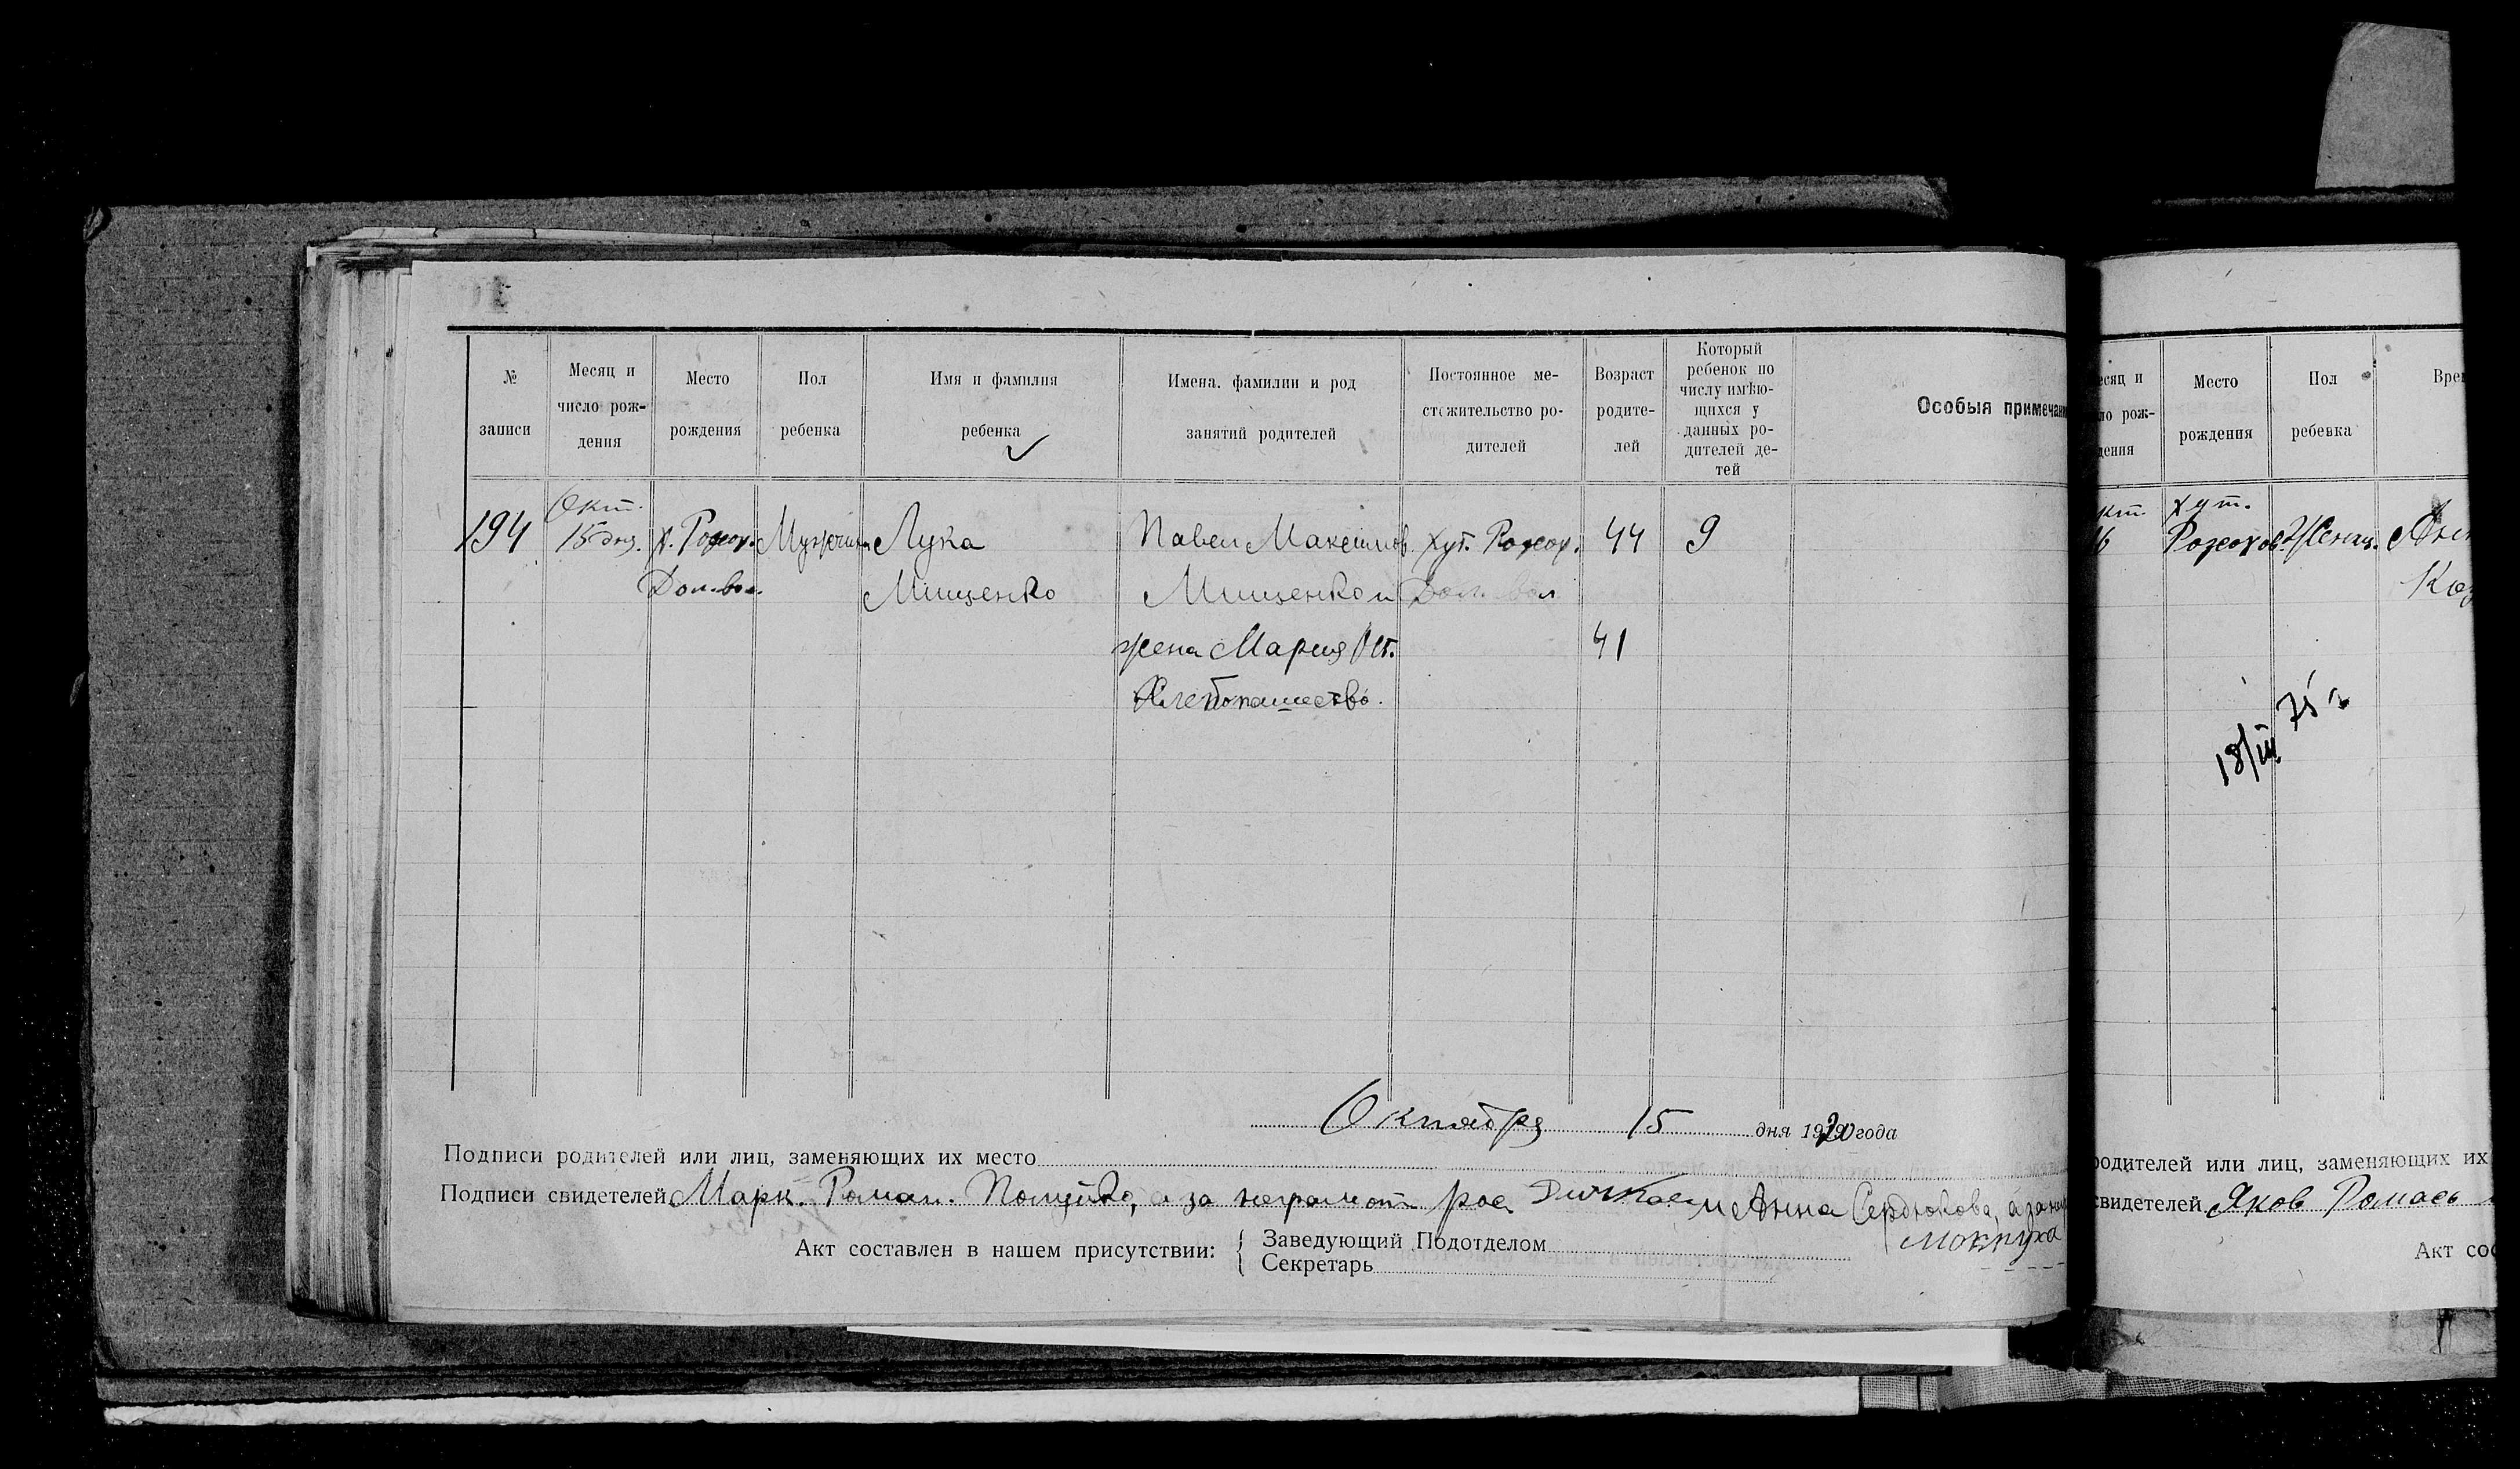 № записи
Месяц и число рождения
Место рождения
Пол ребенка
Имя и фамилия ребенка
Имена. фамилии и род занятий родителей
Постоянное местожительство родителей
Возраст родителей
Который ребенок по числу имѣющихся у данных родителей детей
Особыя примечани
194
Окт. 15 дня.
х. Рожох.
Дол. вол.
Мужчина
Лука
Мищенко
Павел Максимов
Мищенко и
жена Мария
Хлебопашество.
хут. Рожох.
Дол. вол
44
41
9
Октября 15 дня 1920 года
Подписи родителей или лиц, заменяющих их место
Подписи свидетелей Марк. Роман. а за неграмот и Анна Сердюкова, а за
Мокруха
Акт составлен в нашем присутствии: Заведующий Подотделом
Секретарь
есяц и
ло рож-
дения
Место рождения
Пол ребевка
Врем
кт.
16
хут.
Рожохов.
Женщ.
18/III 75 г
родителей или лиц, заменяющих их
свидетелей Яков Ромась
Акт сос